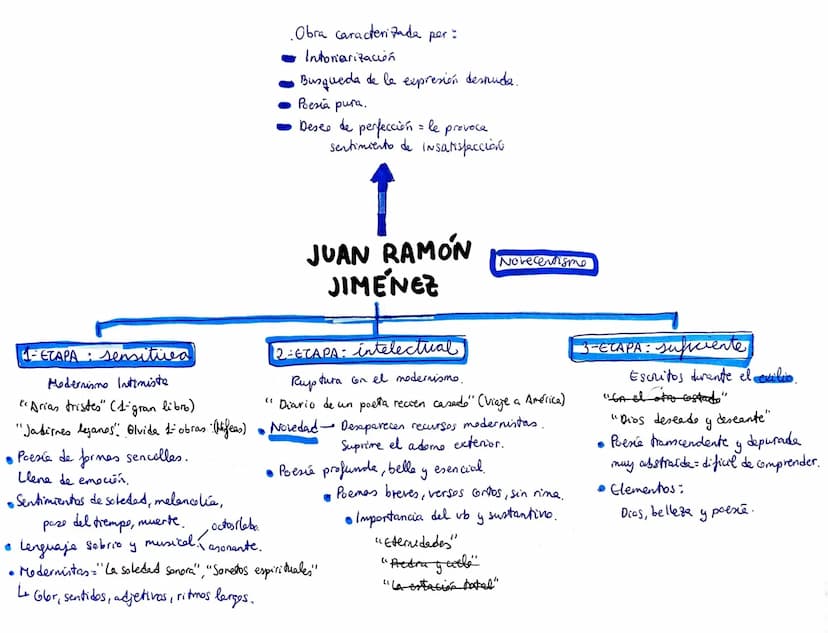 . Obra caracterizada por:
Intoriarización
Busqueda de la expresión desnuda.
Poesía pura.
Deseo de perfección = le provoca
sentimiento de INSATISFACCIÓN
JUAN RAMÓN
JIMÉNEZ
Novecentismo
1-ETAPA: sensitiva
Modernismo Intimista
"Arias tristes" (1ºgran libro)
"Jardines lejanos". Olvida 1ºobras: (Nifeas)
Poesía de formas sencillas.
Llena de emoción.
Sentimientos de soledad, melancolía,
paso del tiempo, muerte.
Lenguaje sobrio y musical octosílabo
asonante.
Modernistas= "La soledad sonora", "Sonetos espirituales"
Color, sentidos, adjetivos, ritmos largos.
2-ETAPA: intelectual
Ruptura con el modernismo.
"Diario de un poeta recien casado" (Viaje a América)
Novedad Desaparecen recursos modernistas.
Suprime el adorno exterior.
Poesía profunda, bella y esencial.
Poemas breves, versos cortos, sin rima.
Importancia del vb y sustantivo.
"Eternidades"
"Piedra y cielo"
"La estación total"
3-ETAPA: suficiente
Escritos durante el exilio.
"En el otro costado"
"Dios deseado y deseante"
Poesía transcendente y depurada
muy abstraída= difícil de comprender.
Elementos:
Dios, belleza y poesía.